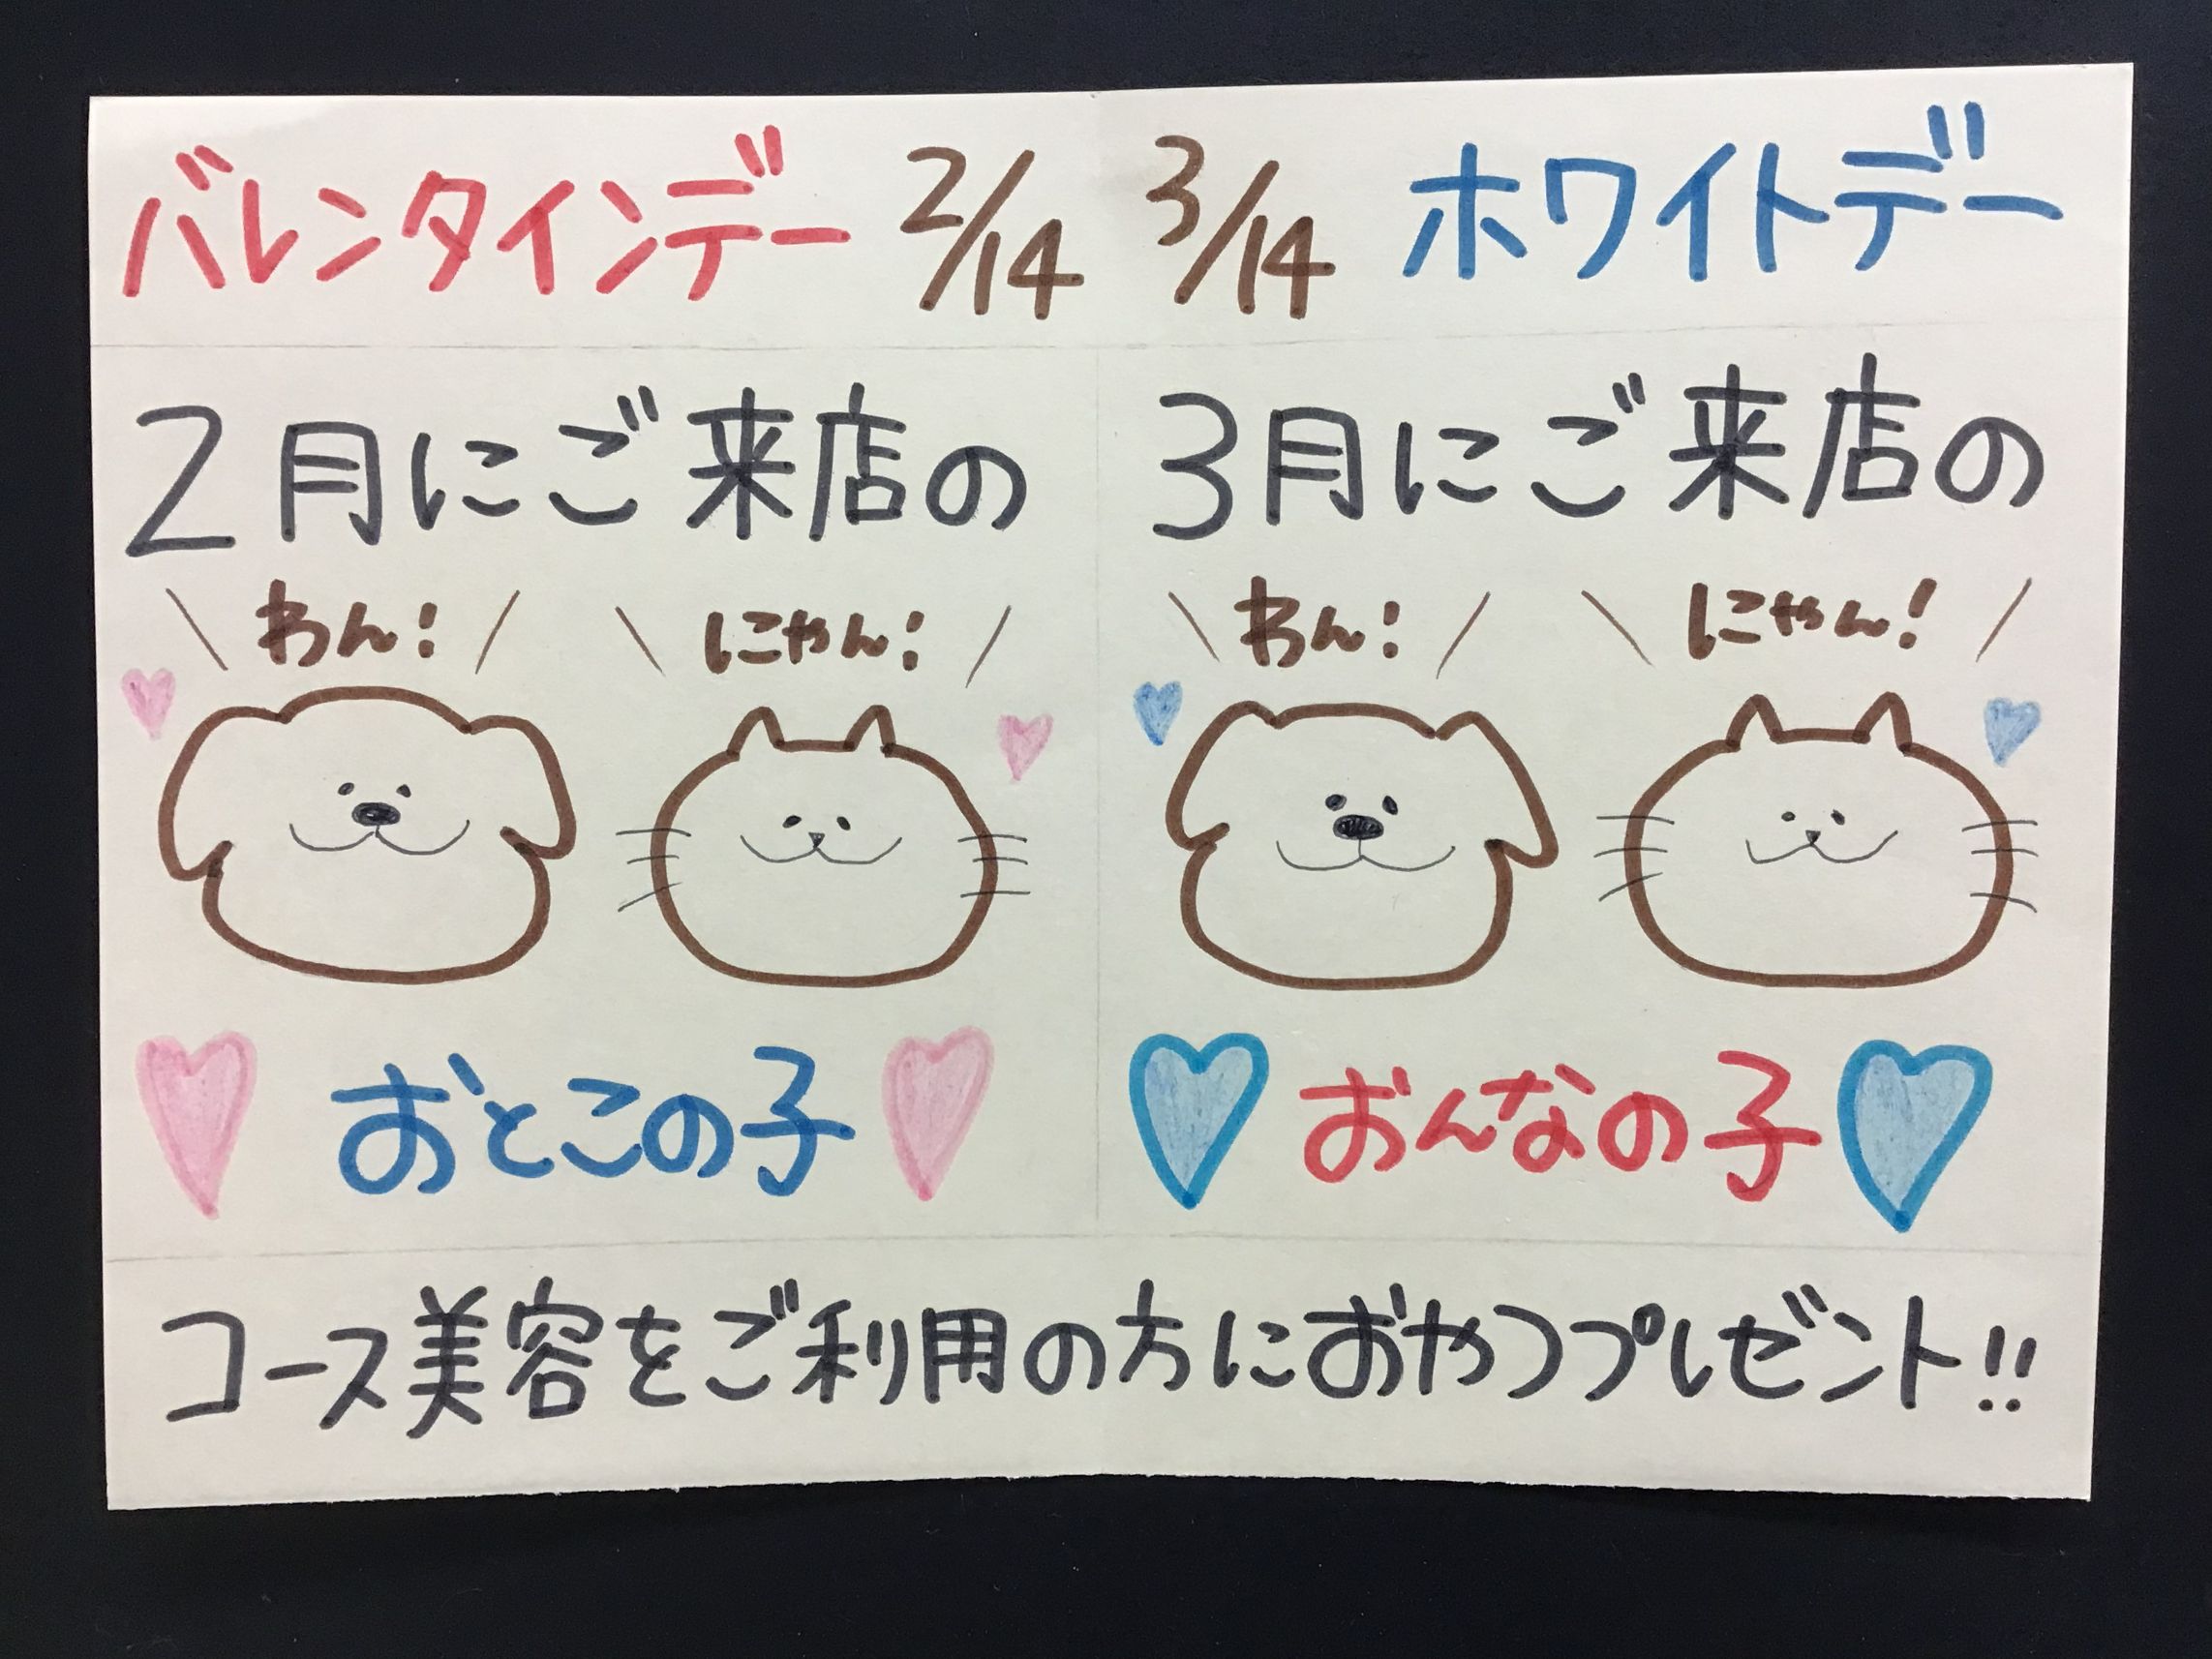 バレンタインデー 2/14
2月にご来店の
わん! にゃん!
おとこの子
3/14 ホワイトデー
3月にご来店の
わん! にゃん!
おんなの子
コース美容をご利用の方におやつプレゼント!!